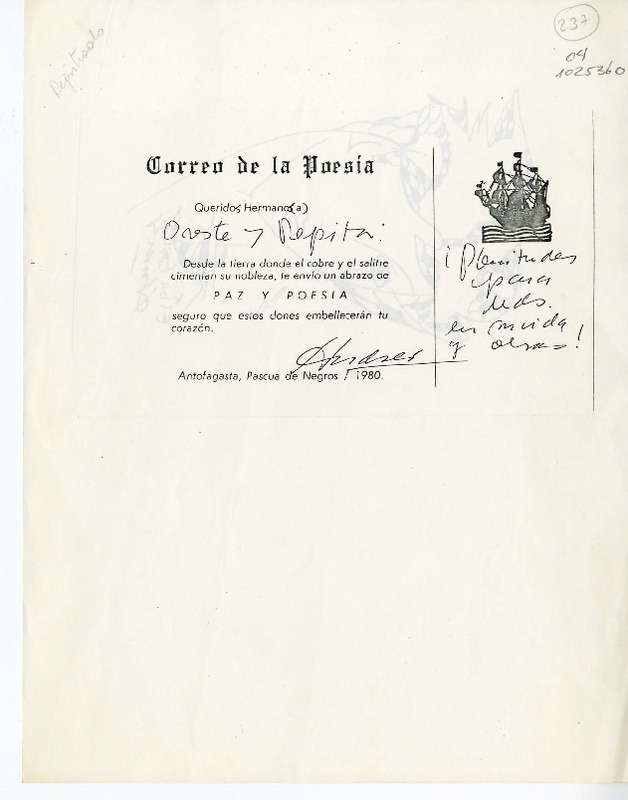 Registrado
237
04
1025360
Correo de la Poesía
Queridos Hermanos(a)
Oreste y Pepita:
Desde la tierra donde el cobre y el salitre
cimentan su nobleza, te envío un abrazo de
PAZ Y POESIA
seguro que estos dones embellecerán tu
corazón.
Andres
Antofagasta, Pascua de Negros / 1980.
¡Plenitudes
para
Uds.
en vida
y obras!